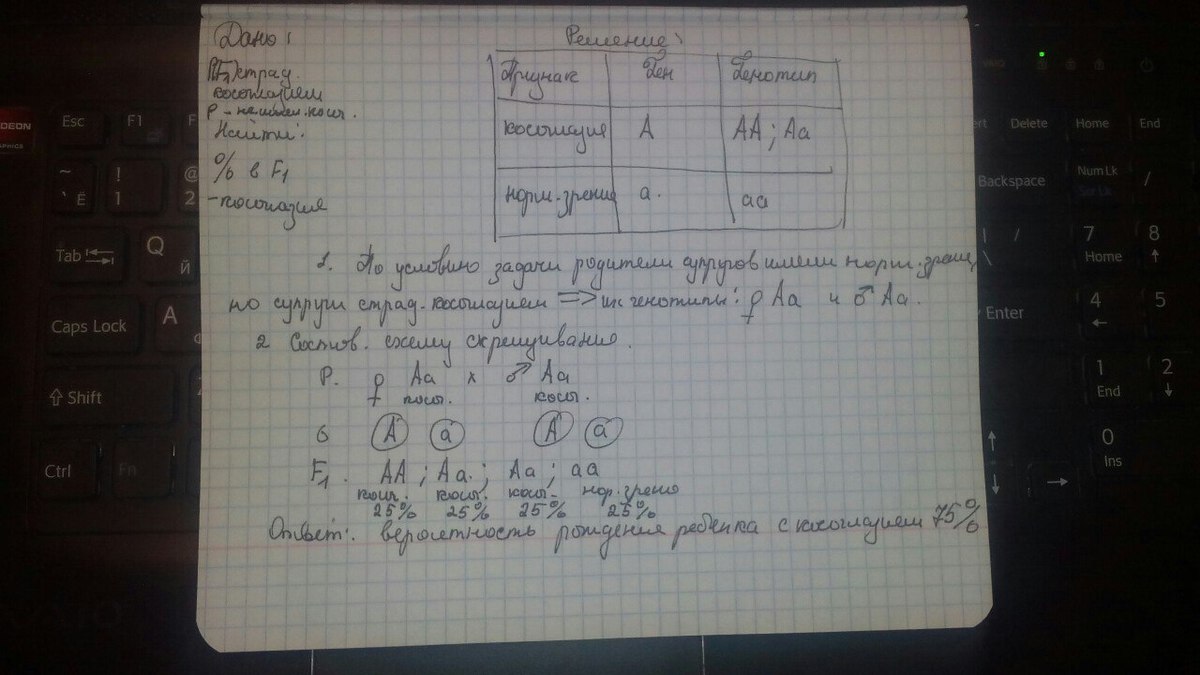 Дано:
Решение:
страд.
косоглазием
Р - не имел. косы.
Найти:
% в F₁
- косоглазия
Признак Ген Генотип
косоглазие А АА ; Аа
норм. зрение а. аа
1. По условию задачи родители супругов имели норм. зрен,
но супруги страд. косоглазием => их генотипы: ♀ Аа и ♂ Аа.
2 Состав. схему скрещивания.
Р. ♀ Аа х ♂ Аа
косы. косы.
G А а А а
F₁. АА ; Аа. ; Аа ; аа
косы. косы. косы- нор. зрение
25% 25% 25% 25%
Ответ: вероятность рождения ребенка с косоглазием 75%
Esc
F1
~ ` Ё
! 1
@ 2
Tab
Q Й
Caps Lock
A
Shift
Ctrl
Fn
Delete
Home
End
Backspace
Num Lk
/
7 Home
8
4
5
Enter
1 End
2
0 Ins